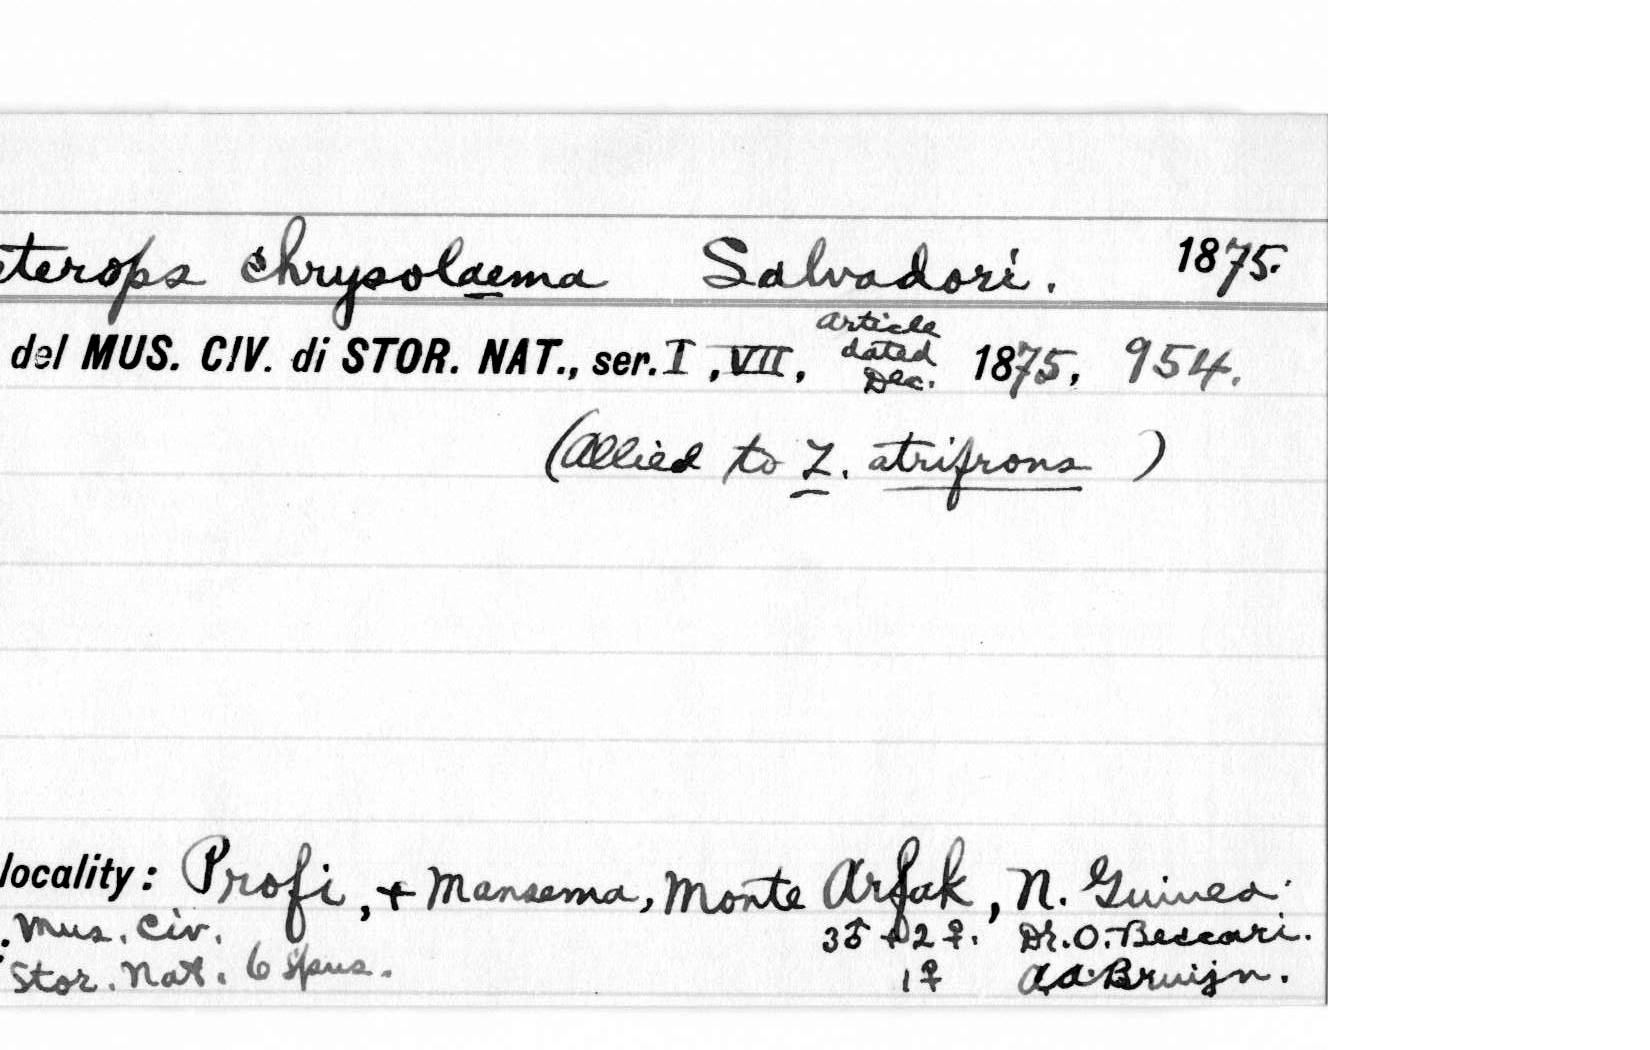 eterops chrysolaema Salvadori. 1875.
del MUS. CIV. di STOR. NAT., ser. I, VII, article dated Dec. 1875, 954.
(allied to Z. atrifrons )
locality: Profi, + Mansema, Monte Arfak, N. Guinea.
. Mus. Civ. 3♂ + 2♀. Dr. O. Beccari.
Stor. Nat. 6 spns. 1♀ A.A. Bruijn.